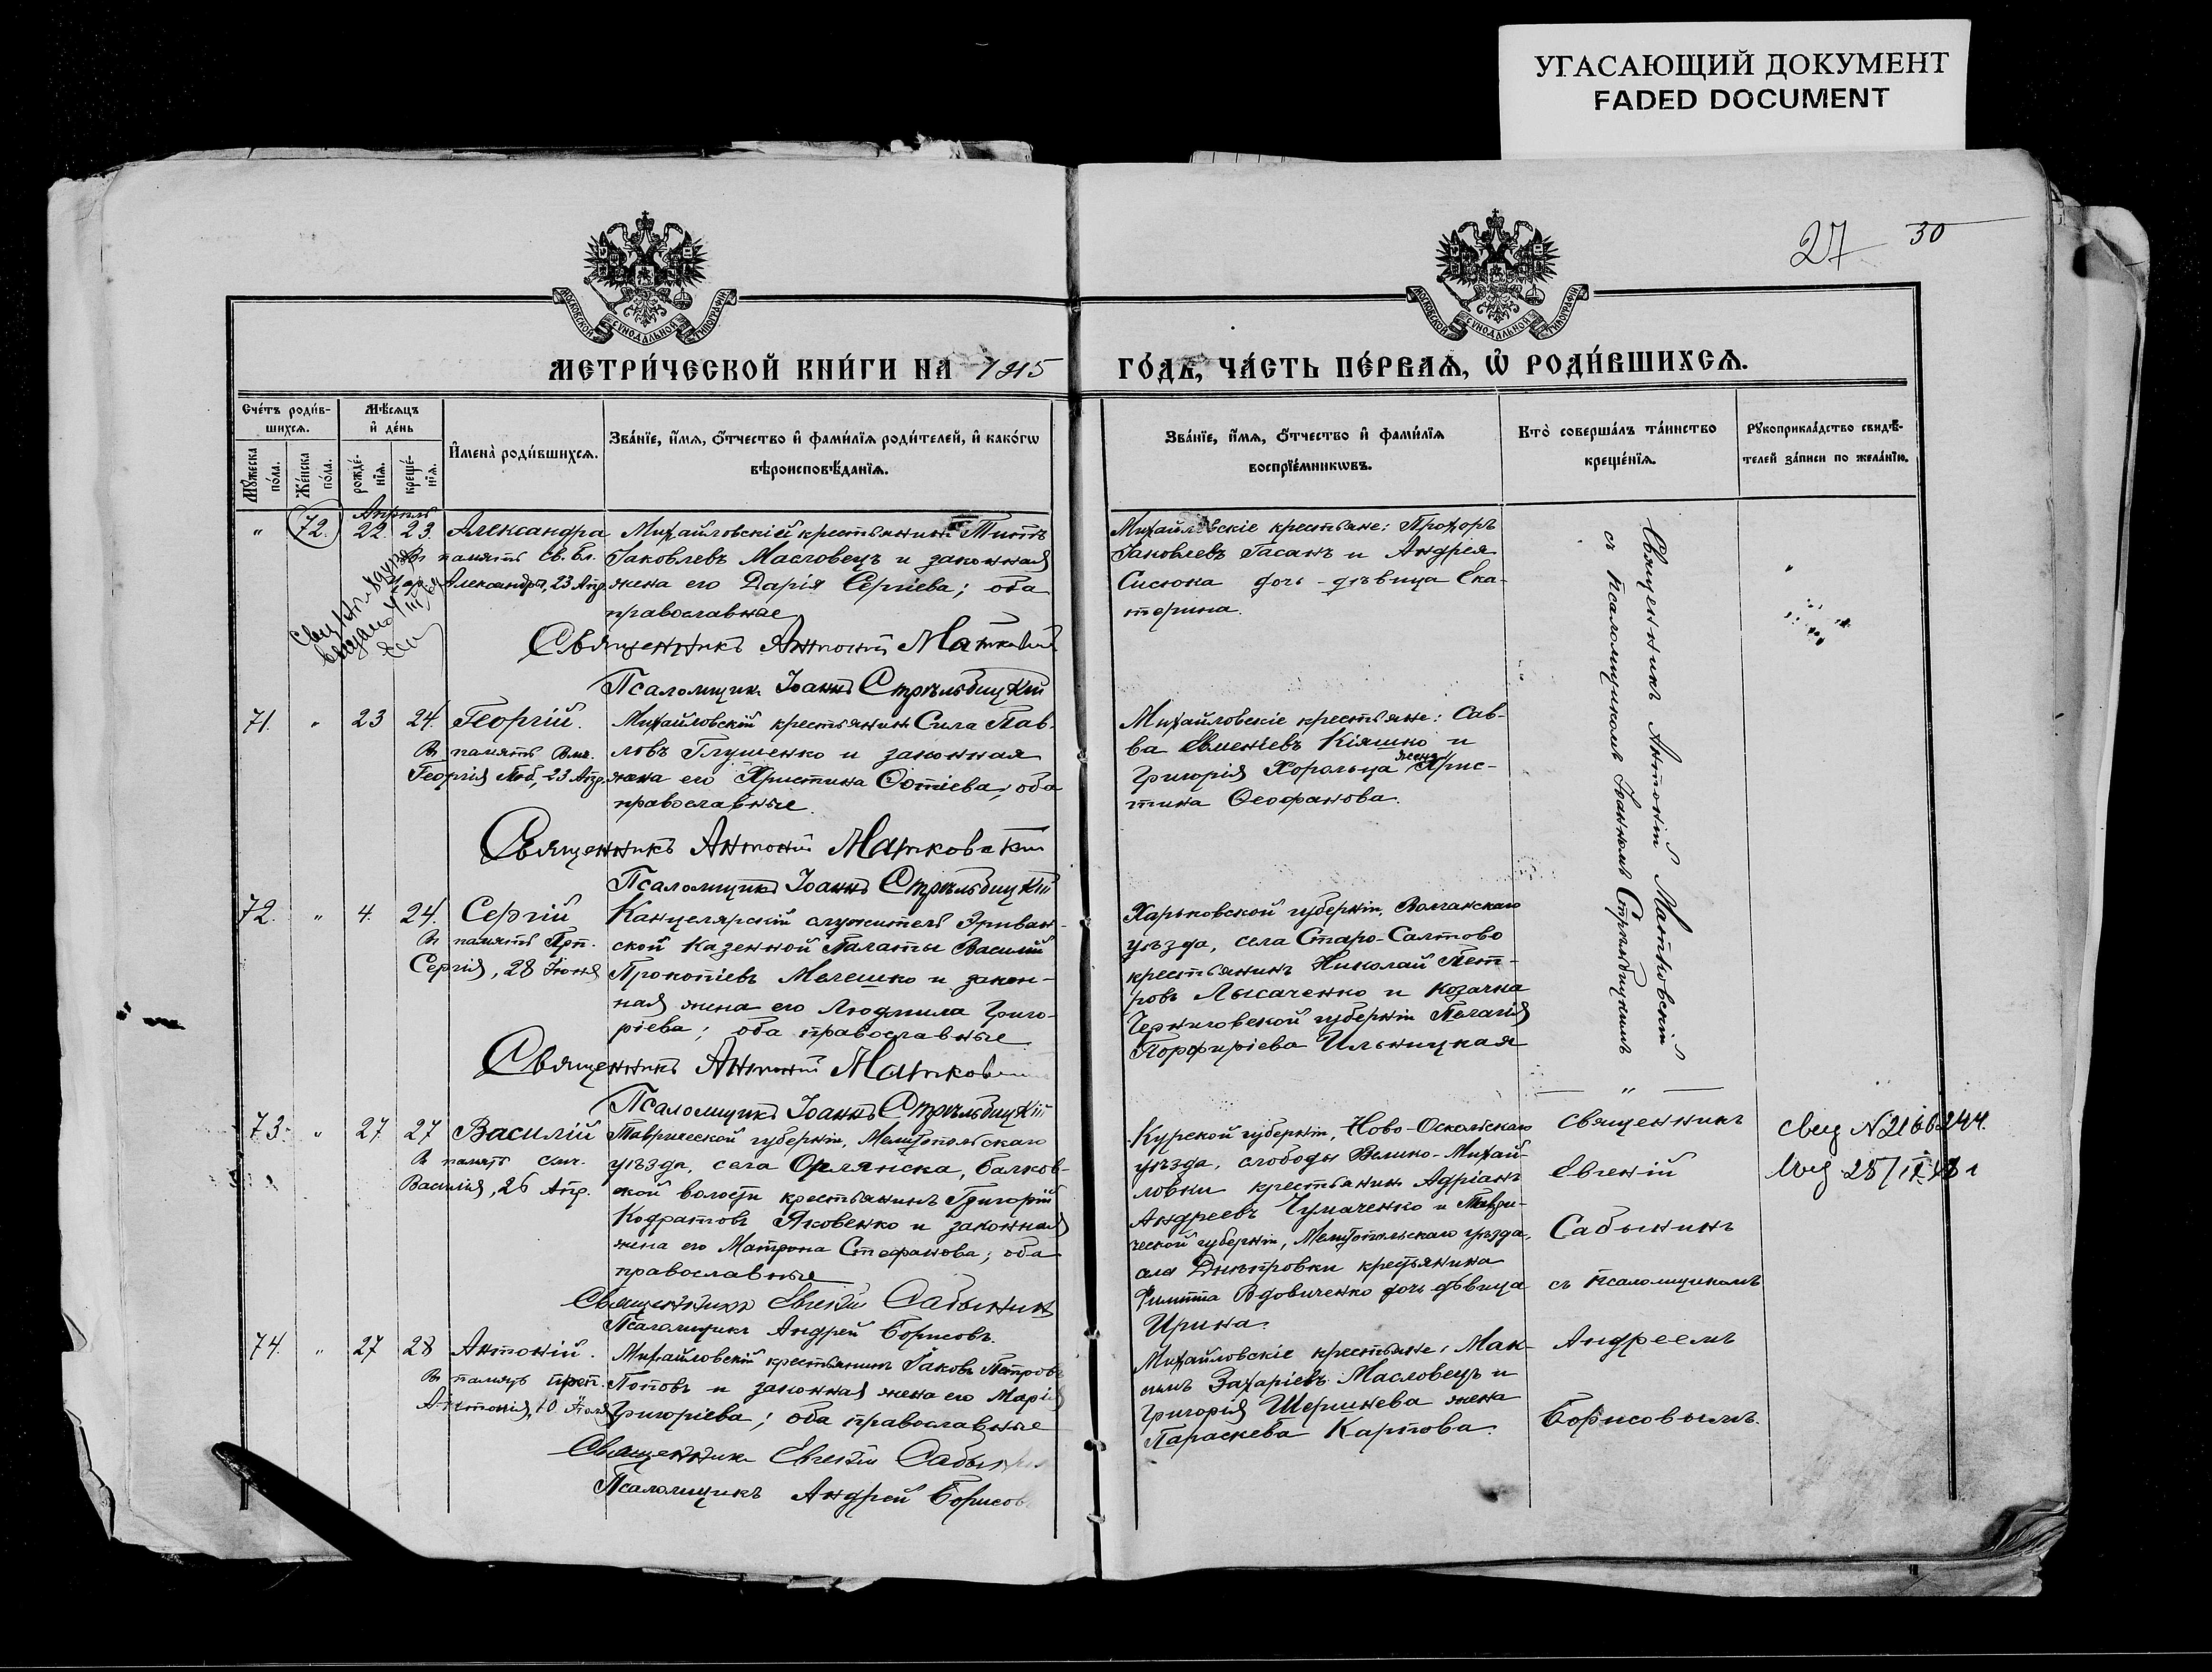 УГАСАЮЩИЙ ДОКУМЕНТ
FADED DOCUMENT
27 30
МОСКОВСКОЙ СѴНОДАЛЬНОЙ ТИПОГРАФІИ
МОСКОВСКОЙ СѴНОДАЛЬНОЙ ТИПОГРАФІИ
МЕТРИ́ЧЕСКОЙ КНИ́ГИ НА 1915
ГО́ДЪ, ЧА́СТЬ ПЕ́РВАѦ, Ѡ РОДИ́ВШИХСѦ.
Сче́тъ роди́в-
шихсѧ.
Мꙋ́жеска по́ла.
Же́нска по́ла.
Мѣ́сѧцъ и҆ де́нь
рожде́-нїѧ.
креще́-нїѧ.
И҆мена̀ роди́вшихсѧ.
Зва́нїе, и҆́мѧ, ѻ҆́тчество и҆ фами́лїѧ роди́телей, и҆ како́гѡ
вѣроисповѣ́данїѧ.
Зва́нїе, и҆́мѧ, ѻ҆́тчество и҆ фами́лїѧ
воспрїе́мникѡвъ.
Кто̀ соверша́лъ та́инство
креще́нїѧ.
Рꙋкоприкла́дство свидѣ́-
телей за́писи по жела́нїю.
Апрѣль
" 72. 22. 23. Александра
въ память Св. бл.
Александры, 23 Апр.
Михайловскій крестьянинъ Титъ
Іаковлевъ Масловецъ и законная
жена его Дарія Сергіева; оба
православные
Священникъ Антоній Матковскій
Псаломщикъ Іоаннъ Стрѣльбицкій
Михайловскіе крестьяне: Прохоръ
Іаковлевъ Гасанъ и Андрея
Сисюна дочь-дѣвица Ека-
терина.
Священникъ Антоній Матковскій
съ Псаломщикомъ Іоанномъ Стрѣльбицкимъ
71. " 23 24 Георгій.
Въ память Вмч.
Георгія Поб., 23 Апр.
Михайловскій крестьянинъ Сила Пав-
ловъ Глущенко и законная
жена его Христина Фотіева; оба
православные.
Священникъ Антоній Матковскій
Псаломщикъ Іоаннъ Стрѣльбицкій
Михайловскіе крестьяне: Сав-
ва Евменіевъ Кіяшко и
Григорія Хорольца жена Хрис-
тина Ѳеофанова.
72. " 4. 24. Сергій
Въ память Прп.
Сергія, 28 Іюня
Канцелярскій служитель Эриван-
ской Казенной Палаты Василій
Прокопіевъ Мелешко и закон-
ная жена его Людмила Григо-
ріева; оба православные
Священникъ Антоній Матковскій
Псаломщикъ Іоаннъ Стрѣльбицкій
Харьковской губерніи, Волчанскаго
уѣзда, села Старо-Салтово
крестьянинъ Николай Пет-
ровъ Лысаченко и козачка
Черниговской губерніи Пелагія
Порфиріева Ильницкая
— " —
73. " 27 27 Василій
Въ память смч.
Василія, 26 Апр.
Таврической губерніи, Мелитопольскаго
уѣзда, села Орлянска, Балков-
ской волости крестьянинъ Григорій
Кодратовъ Яковенко и законная
жена его Матрона Стефанова; оба
православные
Священникъ Евгеній Сабынинъ
Псаломщикъ Андрей Борисовъ.
Курской губерніи, Ново-Оскольскаго
уѣзда, слободы Велико-Михай-
ловки крестьянинъ Адріанъ
Андреевъ Чумаченко и Таври-
ческой губерніи, Мелитопольскаго уѣзда,
села Днѣпровки крестьянина
Филиппа Вдовиченко дочь-дѣвица
Ирина.
Священникъ
Евгеній
Сабынинъ
съ псаломщикомъ
Андреемъ
Борисовымъ.
74. " 27 28 Антоній.
Въ память преп.
Антонія, 10 Іюля
Михайловскій крестьянинъ Іаковъ Петровъ
Поповъ и законная жена его Марія
Григоріева; оба православные
Священникъ Евгеній Сабынинъ
Псаломщикъ Андрей Борисовъ
Михайловскіе крестьяне: Мак-
симъ Захаріевъ Масловецъ и
Григорія Шершнева жена
Параскева Карпова.